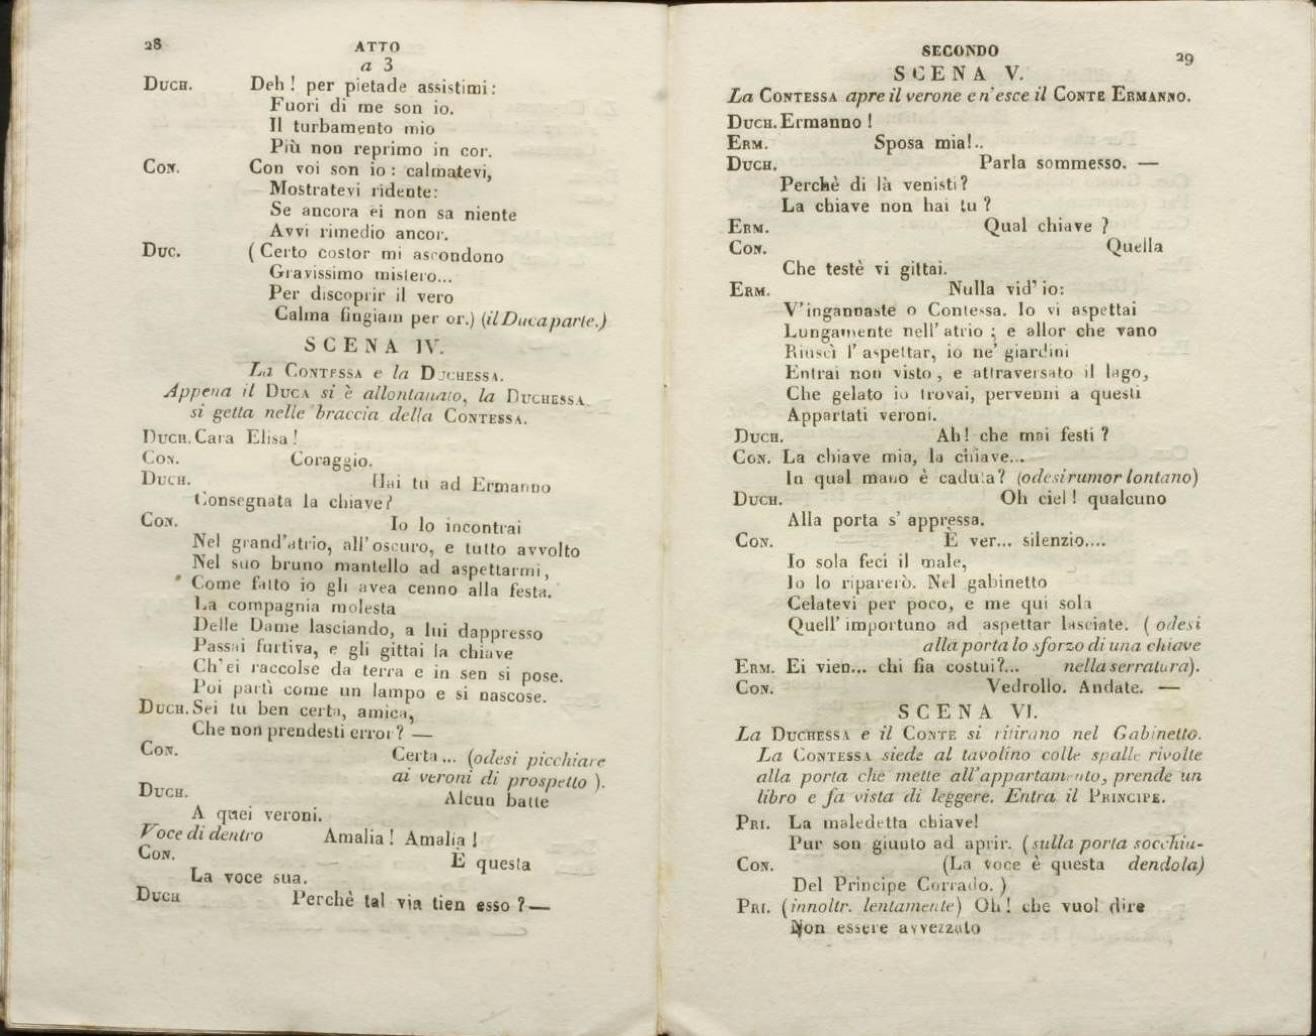 28 ATTO
a 3
DUCH. Deh! per pietade assistimi:
Fuori di me son io.
Il turbamento mio
Più non reprimo in cor.
CON. Con voi son io: calmatevi,
Mostratevi ridente:
Se ancora ei non sa niente
Avvi rimedio ancor.
DUC. (Certo costor mi ascondono
Gravissimo mistero...
Per discoprir il vero
Calma fingiam per or.) (il Duca parte.)
SCENA IV.
La CONTESSA e la DUCHESSA.
Appena il DUCA si è allontanato, la DUCHESSA
si getta nelle braccia della CONTESSA.
DUCH. Cara Elisa!
CON. Coraggio.
DUCH. Hai tu ad Ermanno
Consegnata la chiave?
CON. Io lo incontrai
Nel grand'atrio, all'oscuro, e tutto avvolto
Nel suo bruno mantello ad aspettarmi,
Come fatto io gli avea cenno alla festa.
La compagnia molesta
Delle Dame lasciando, a lui dappresso
Passai furtiva, e gli gittai la chiave
Ch'ei raccolse da terra e in sen si pose.
Poi partì come un lampo e si nascose.
DUCH. Sei tu ben certa, amica,
Che non prendesti error? —
CON. Certa... (odesi picchiare
ai veroni di prospetto).
DUCH. Alcun batte
A quei veroni.
Voce di dentro Amalia! Amalia!
CON. È questa
La voce sua.
DUCH Perchè tal via tien esso? —
SECONDO 29
SCENA V.
La CONTESSA apre il verone e n'esce il CONTE ERMANNO.
DUCH. Ermanno!
ERM. Sposa mia!..
DUCH. Parla sommesso. —
Perchè di là venisti?
La chiave non hai tu?
ERM. Qual chiave?
CON. Quella
Che testè vi gittai.
ERM. Nulla vid' io:
V'ingannaste o Contessa. Io vi aspettai
Lungamente nell' atrio; e allor che vano
Riuscì l' aspettar, io ne' giardini
Entrai non visto, e attraversato il lago,
Che gelato io trovai, pervenni a questi
Appartati veroni.
DUCH. Ah! che mai festi?
CON. La chiave mia, la chiave...
In qual mano è caduta? (odesi rumor lontano)
DUCH. Oh ciel! qualcuno
Alla porta s' appressa.
CON. È ver... silenzio....
Io sola feci il male,
Io lo riparerò. Nel gabinetto
Celatevi per poco, e me qui sola
Quell' importuno ad aspettar lasciate. (odesi
alla porta lo sforzo di una chiave
ERM. Ei vien... chi fia costui?... nella serratura).
CON. Vedrollo. Andate. —
SCENA VI.
La DUCHESSA e il CONTE si ritirano nel Gabinetto.
La CONTESSA siede al tavolino colle spalle rivolte
alla porta che mette all'appartamento, prende un
libro e fa vista di leggere. Entra il PRINCIPE.
PRI. La maledetta chiave!
Pur son giunto ad aprir. (sulla porta socchiu-
CON. (La voce è questa dendola)
Del Principe Corrado.)
PRI. (innoltr. lentamente) Oh! che vuol dire
Non essere avvezzato